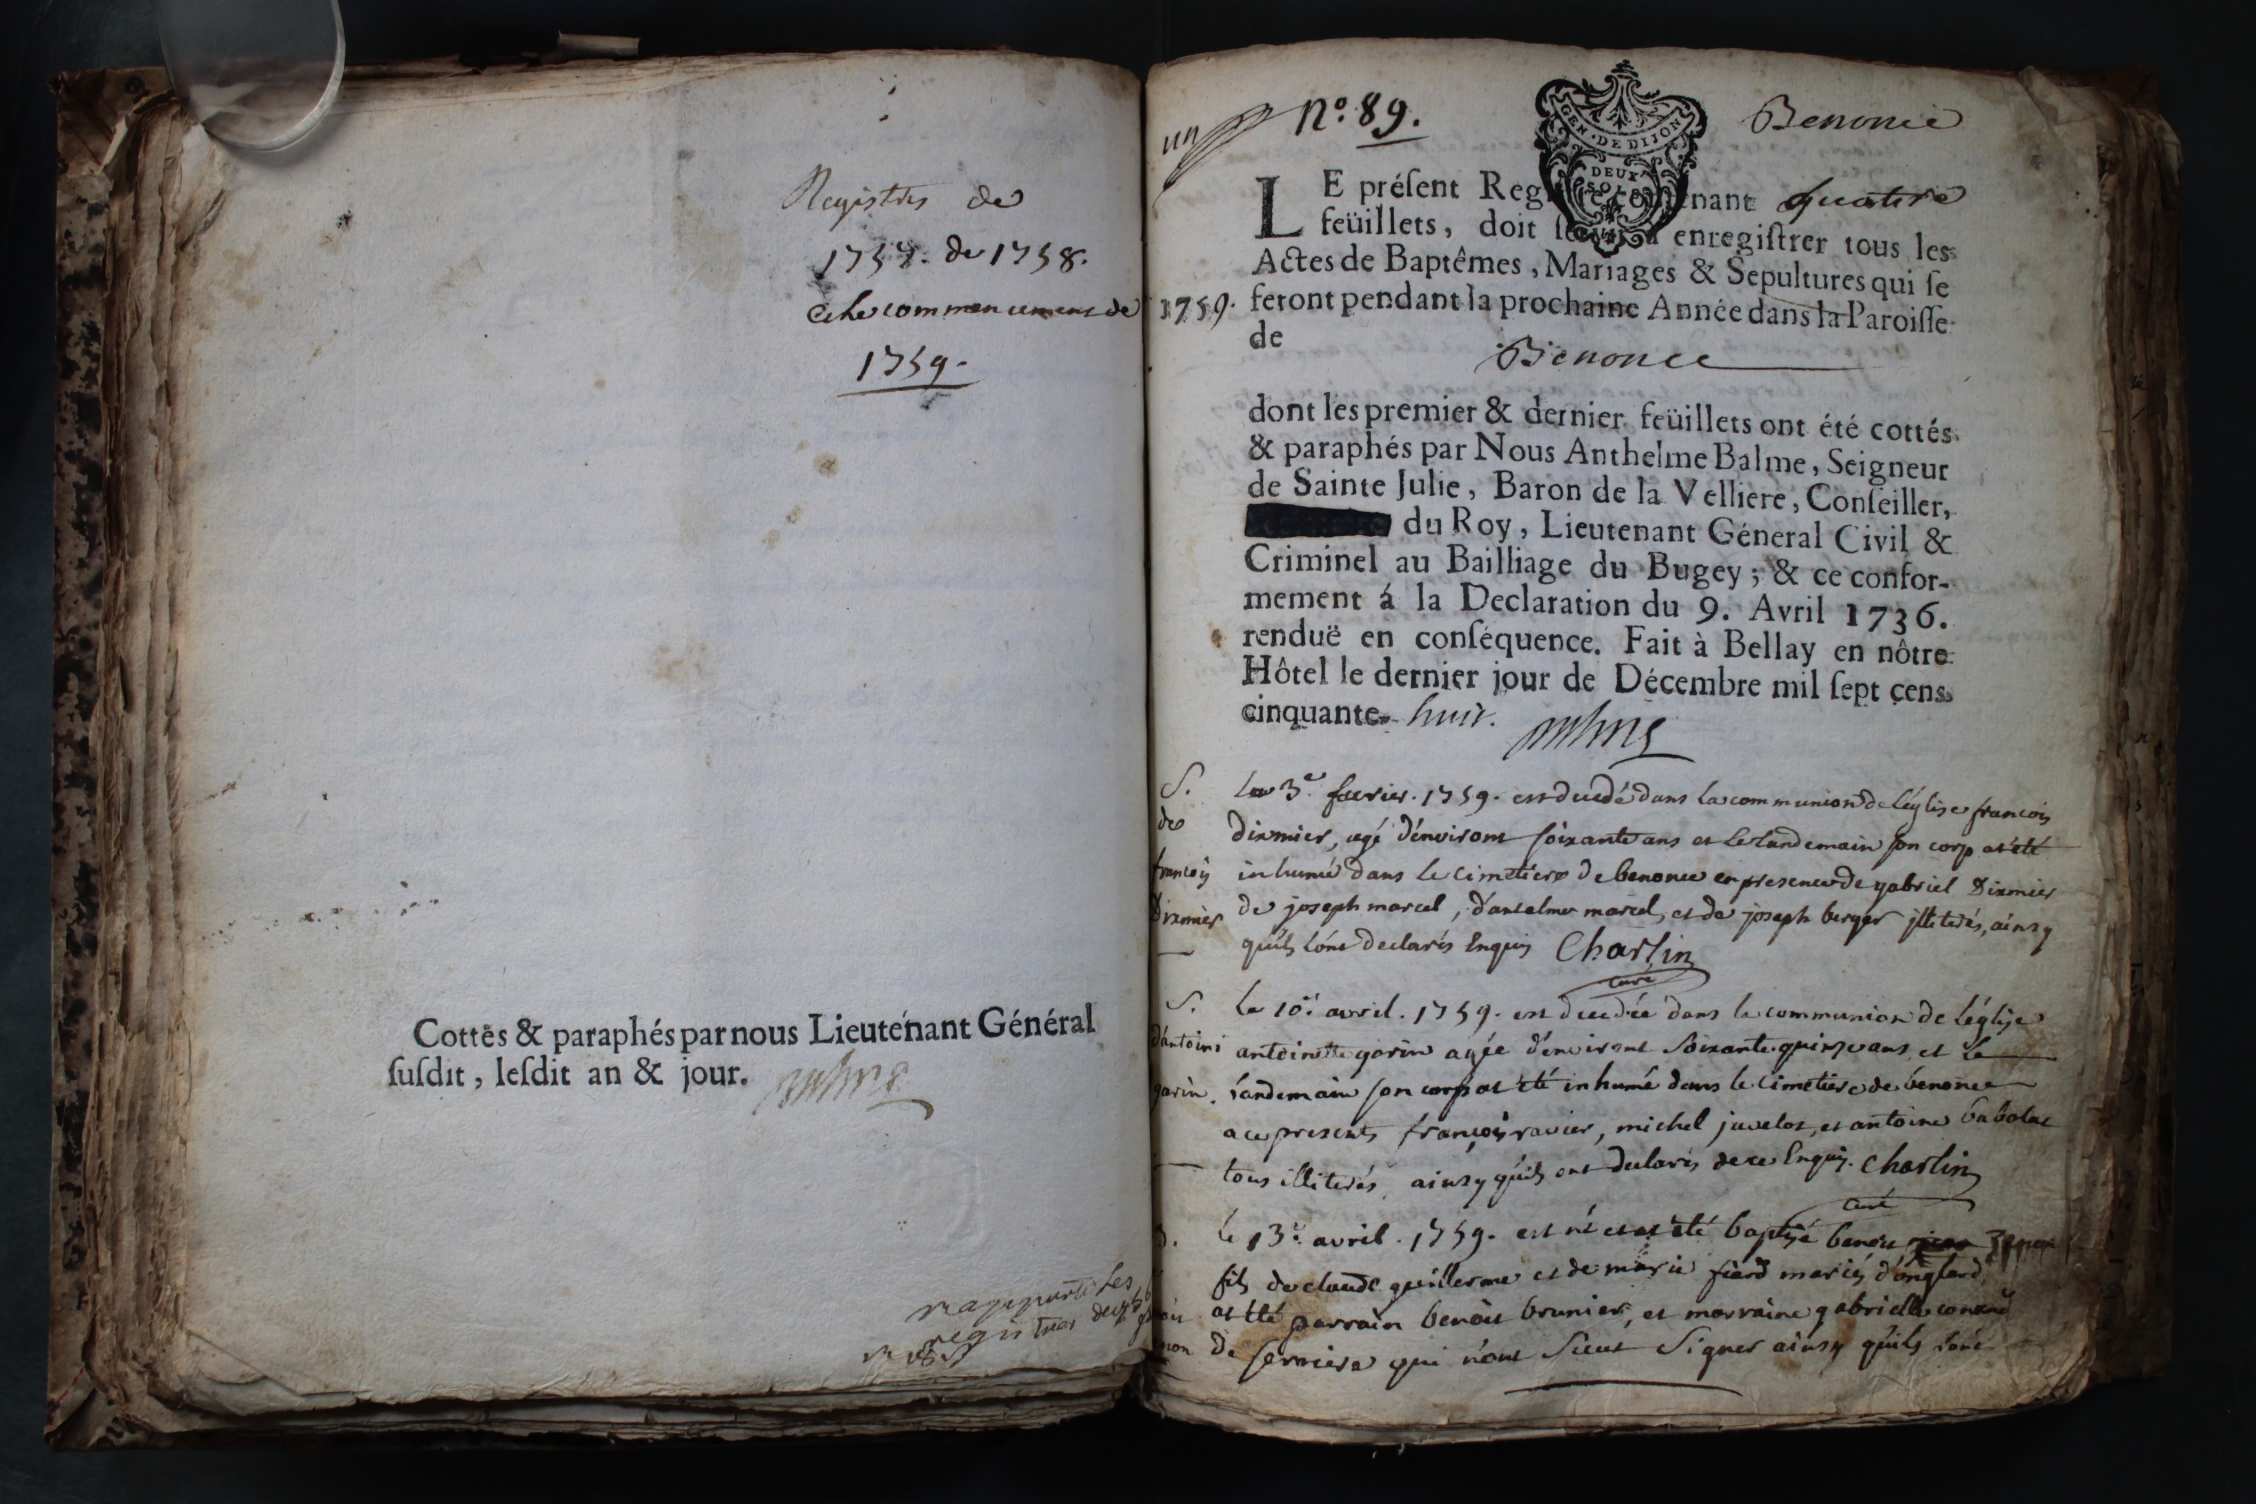 Registres de
1757. de 1758.
et le commencement de
1759.
Cottés & paraphés par nous Lieutenant Général
ſuſdit, leſdit an & jour.
registres
un
N.º 89.
GEN. DE DIJON
DEUX
SOLS
Benonce
LE préſent Regi contenant quatre
feüillets, doit enregiſtrer tous les
Actes de Baptêmes, Mariages & Sepultures qui ſe
1759. feront pendant la prochaine Année dans la Paroiſſe
de
Benonce
dont les premier & dernier feüillets ont été cottés
& paraphés par Nous Anthelme Balme, Seigneur
de Sainte Julie, Baron de la Velliere, Conſeiller,
du Roy, Lieutenant Géneral Civil &
Criminel au Bailliage du Bugey; & ce confor-
mement á la Declaration du 9. Avril 1736.
renduë en conſéquence. Fait à Bellay en nôtre
Hôtel le dernier jour de Décembre mil ſept cens
cinquante huit.
S.
de
françois
Dixmier
Le 3e fevrier. 1759. est decedé dans la communion de l'église francois
dixmier, agé d'environt soixante ans et le landemain son corp at été
inhumé dans le cimetiere de benonce en presence de gabriel Dixmier
de joseph marcel, d'antelme marcel, et de joseph berger illiterés, ainsy
qu'ils l'ont declarés Enquis Charlin
curé
S.
d'antoine
garin.
Le 10e avril. 1759. est decedée dans la communion de l'église
antoinette garin agée d'environt soixante quinze ans, et le
landemain son corp at été inhumé dans le cimetiere de benonce
a ce presents françois ravier, michel juvelot, et antoine babolat
tous illiterés, ainsy qu'ils ont declarés de ce Enquis. Charlin
curé
le 13e avril. 1759. est né et at été baptisé benoit
fils de claude guillerme et de marie fiard mariés d'onglard
at été parrain benoit brunier, et marraine gabrielle conand
de serriere qui n'ont sceut signer ainsy qu'ils l'ont